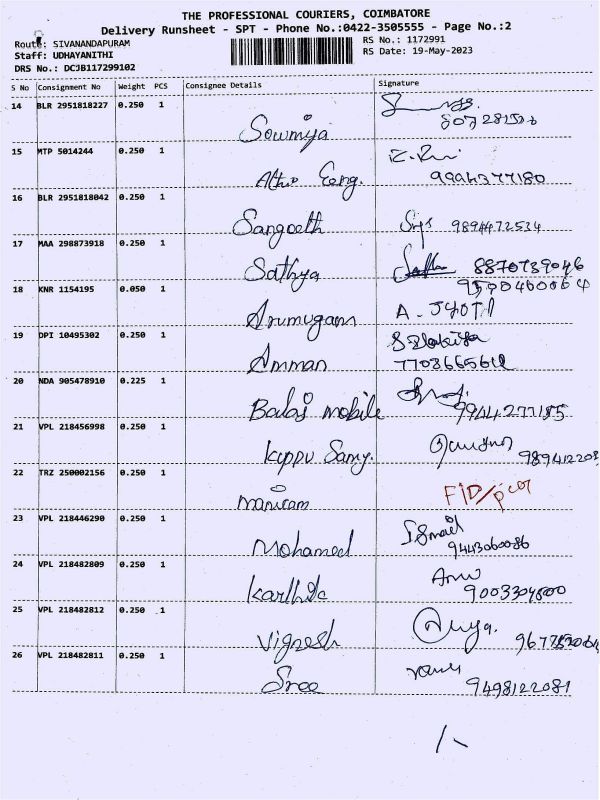 THE PROFESSIONAL COURIERS, COIMBATORE
Delivery Runsheet - SPT - Phone No.:0422-3505555 - Page No.:2
Route: SIVANANDAPURAM RS No.: 1172991
Staff: UDHAYANITHI RS Date: 19-May-2023
DRS No.: DCJB117299102
S No Consignment No Weight PCS Consignee Details Signature
14 BLR 2951818227 0.250 1
Sowmiya
15 MTP 5014244 0.250 1
Engg. 9994377180
16 BLR 2951818042 0.250 1
Sangeeth 9894472534
17 MAA 298873918 0.250 1
Sathya 8870739046
18 KNR 1154195 0.050 1
Arumugam A. JYOTI
19 DPI 10495302 0.250 1
Amman
20 NDA 905478910 0.225 1
Balaj mobile 9944277185
21 VPL 218456998 0.250 1
Kuppu Samy. 989412203
22 TRZ 250002156 0.250 1
manicam
23 VPL 218446290 0.250 1 Ismail
Mohamed 9443060086
24 VPL 218482809 0.250 1
Karthik 9003304800
25 VPL 218482812 0.250 1
Vignesh
26 VPL 218482811 0.250 1
Sree 9498122081